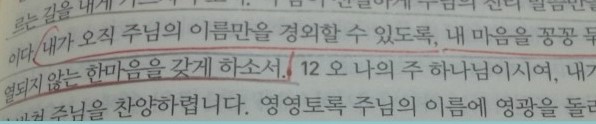 르는 길을 내게
이다. 내가 오직 주님의 이름만을 경외할 수 있도록, 내 마음을 꽁꽁 묶
열되지 않는 한마음을 갖게 하소서. 12 오 나의 주 하나님이시여, 내가
주님을 찬양하렵니다. 영영토록 주님의 이름에 영광을 돌리